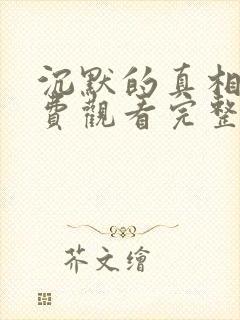 沉默的真相
費觀看完整
芥文繪